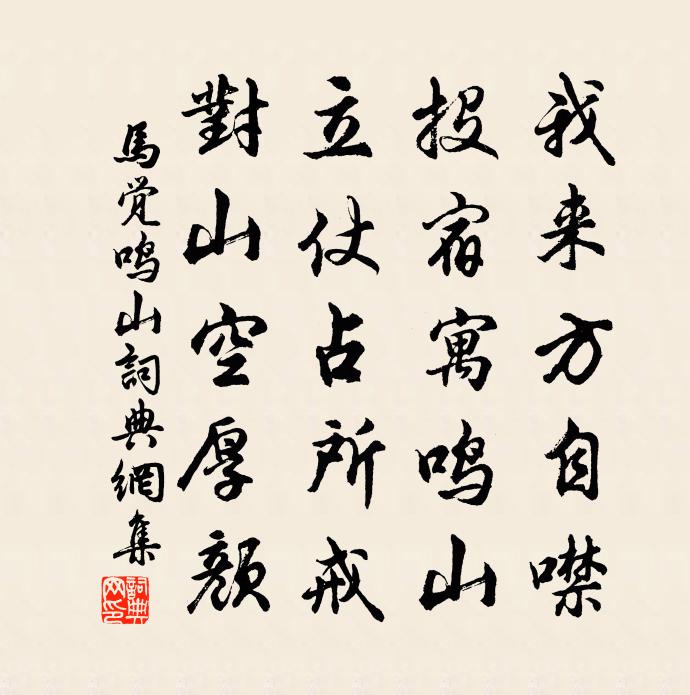 我来方自噤
投宿寓鸣山
立仗占所戒
對山空厚颜
馬覚鸣山詞典網集
詞典网印